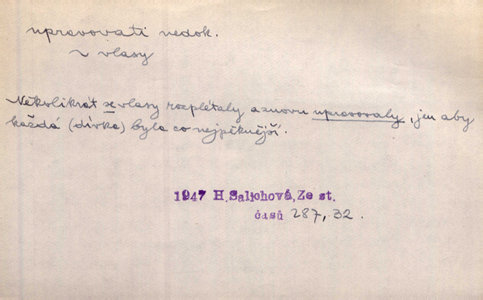 upravovati nedok.
~ vlasy
Několikrát se vlasy rozplétaly a znovu upravovaly, jen aby
každá (dívka) byla co nejpěknější.
1947 H.Salichová,Ze st.
časů 287, 32.